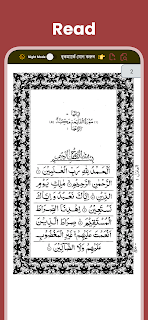 Read
Night Mode
বুকমার্কে যোগ করুন
2
بسم الله الرحمن الرحيم
الْحَمْدُ لِلَّهِ رَبِّ الْعَالَمِينَ
الرَّحْمٰنِ الرَّحِيمِ مٰلِكِ يَوْمِ
الدِّينِ إِيَّاكَ نَعْبُدُ وَإِيَّاكَ
نَسْتَعِينُ اهْدِنَا الصِّرَاطَ
الْمُسْتَقِيمَ صِرَاطَ الَّذِينَ
أَنْعَمْتَ عَلَيْهِمْ غَيْرِ الْمَغْضُوبِ
عَلَيْهِمْ وَلَا الضَّالِّينَ